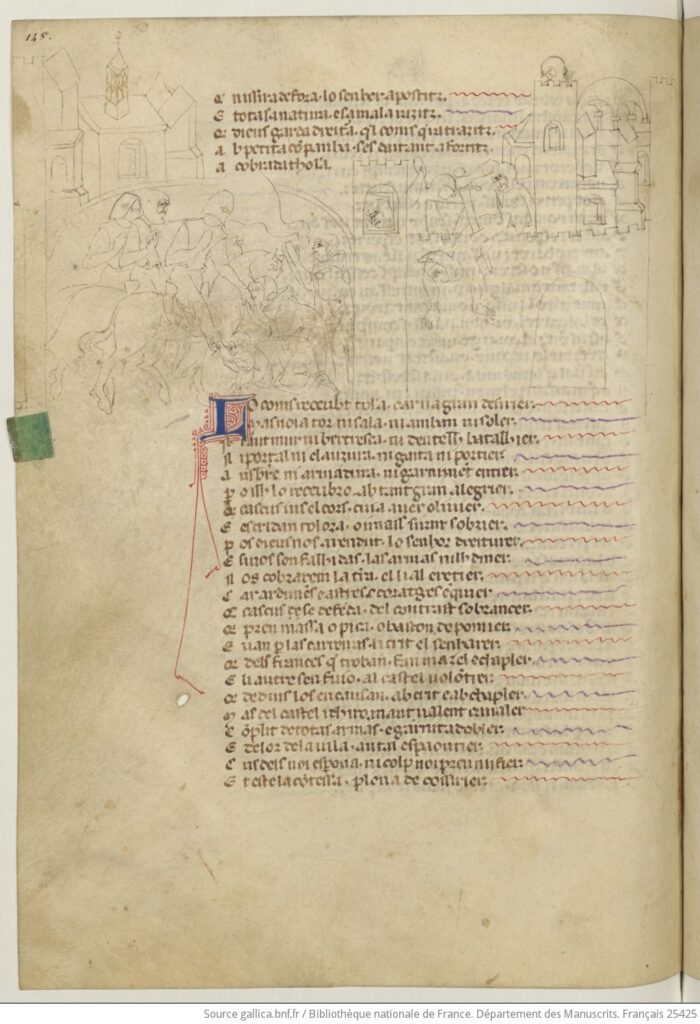 148.
Q nissira defora · lo senher apostitz
E tota sa natura · e sa mala razitz
Q dieus garda dreitura · ql coms
a b petita cōpanha · ses daitant afortitz
a cobrada tholosa.
LO coms receubt tolosa · car na gran desirier
Mas noi a tor ni sala · ni amban ni soler
N i aut mur ni bertresca · ni dentelh batalhier
N i portal ni clauzura · ni gaita ni portier
A usberc ni armadura · ni garnimēt entier
P o ilh lo receubro · ab tant gran alegrier
Q cascus ins el cors · cuia aver olivier
E escridan tolosa · oimais siran sobrier
P os dieus nos a rendut · lo senhor dreiturer
E si nos son falhidas · las armas nilh diner
N os cobrarem la tra · el lial eretier
C ar ardimēs e astres e coratges
Q cascus se defēda · del contrast sobrancer
Q pren massa o pica · o baston de pomier
E van p las carreiras · li crit el senharer
Q dels frances q troban · fan mazel e chapler
E li autre sen fuio · al castel volōtier
Q dedins los encausan · ab crit e ab chapler
M as del castel ichiro · mant valent cavaler
C ōplit de totas armas · e garnit a dobler
E de lor de la vila · an tal espaventier
C us dels noi espona · ni colp noi pren ni fier
E estet la cōtessa · plena de cossirier
Source gallica.bnf.fr / Bibliothèque nationale de France. Département des Manuscrits. Français 25425